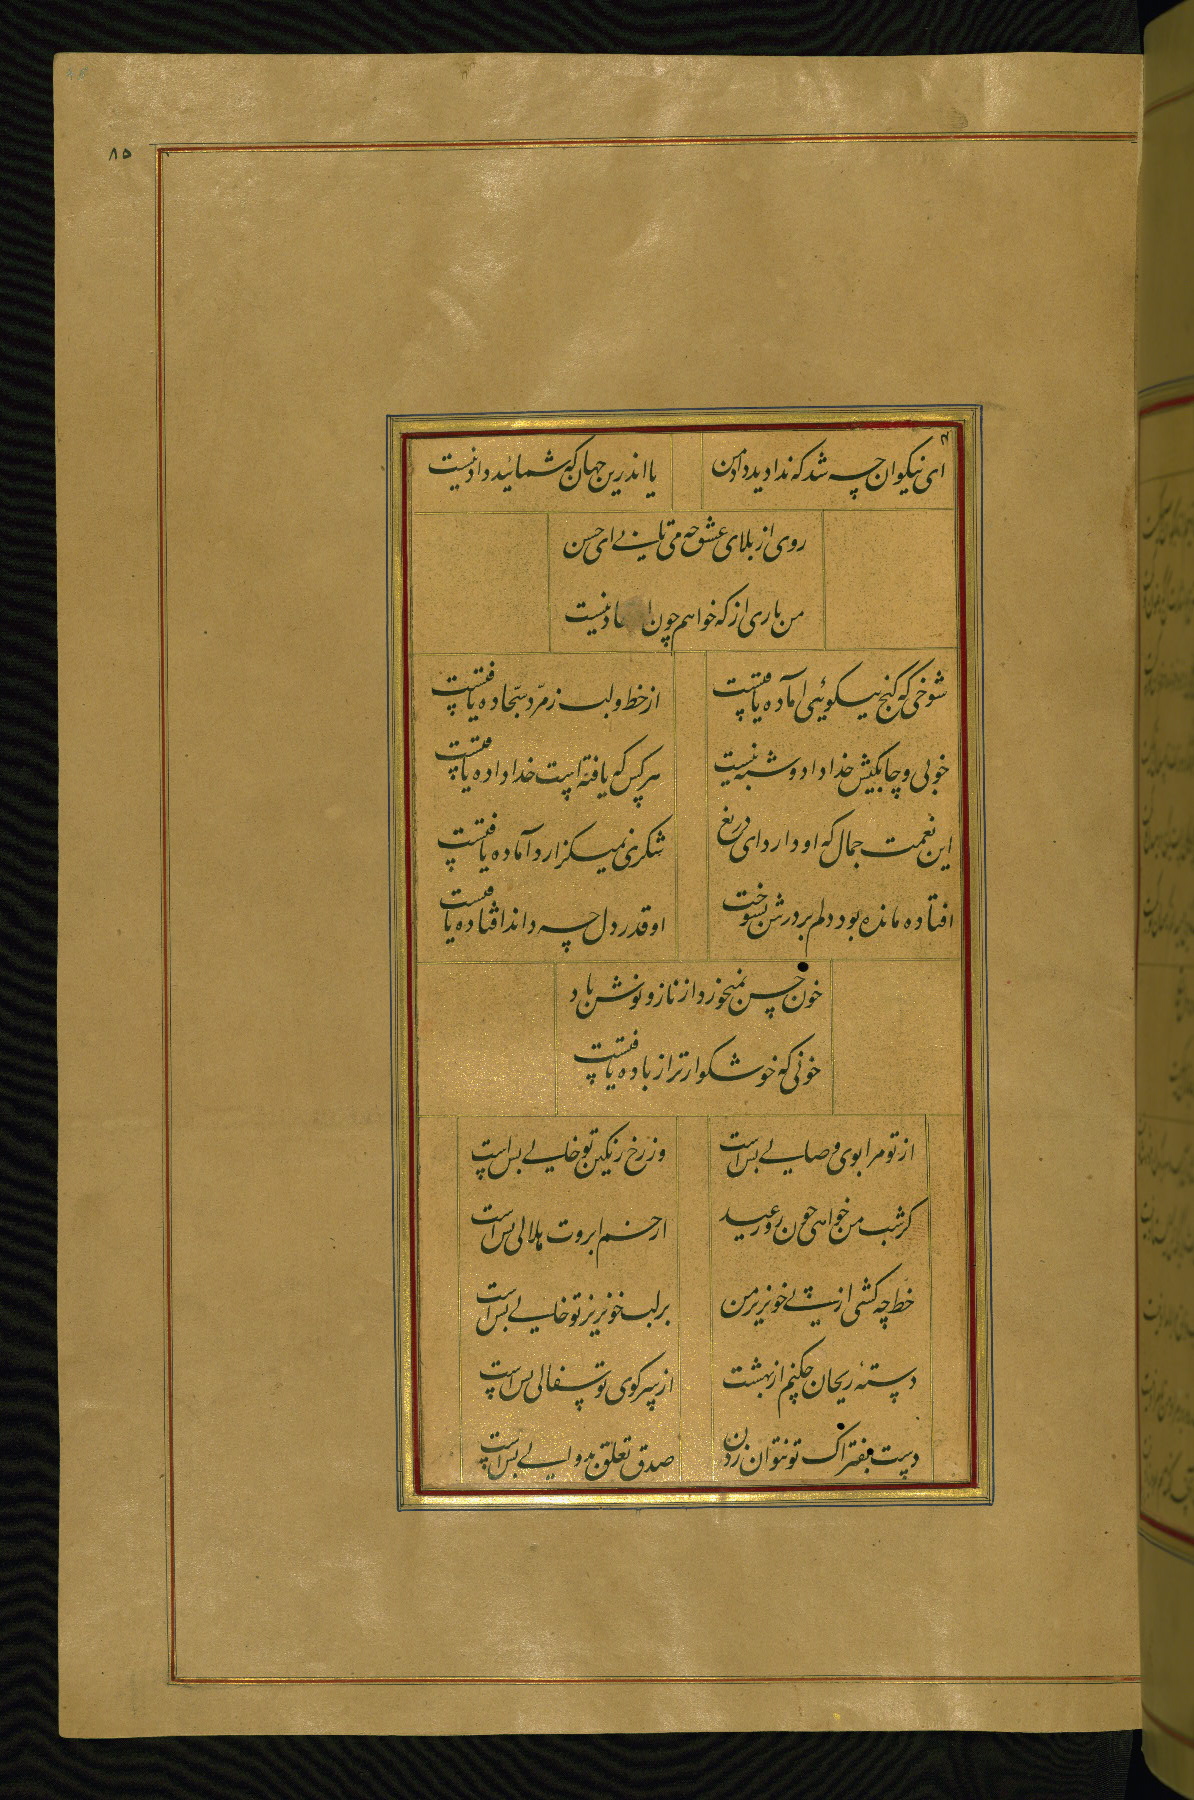 ۸۵
ای نیکوان چه شد که ندادید داد من
یا اندرین جهان که شمائید داد نیست
روی از بلای عشق چه می تابی ای حسن
من باری از که خواهم چون نیست
شوخی که گنج نیکوئی آماده یافتست
از خط و لب زمرد بیجاده یافتست
خوبی و چابکیش خداداد و شبه نیست
هر کس که یافته است خداداده یافتست
این نعمت جمال که او دارد ای دریغ
شکری نمیگزارد آماده یافتست
افتاده مانده بود دلم بر درش بسوخت
او قدر دل چه داند افتاده یافتست
خون حسن نمیخورد از ناز و نوشش باد
خونی که خوشگوارتر از باده یافتست
از تو مرا بوی وصالی بس است
وز رخ رنگین تو خالی بس است
گر شب من خواهی چون روز عید
از خم ابروت هلالی بس است
خط چه کشی از پی خونریز من
بر لب خونریز تو خالی بس است
دستهٔ ریحان چکنم از بهشت
از سر کوی تو سفالی بس است
دست بفتراک تو نتوان زدن
صدق تعلق بدوالی بس است